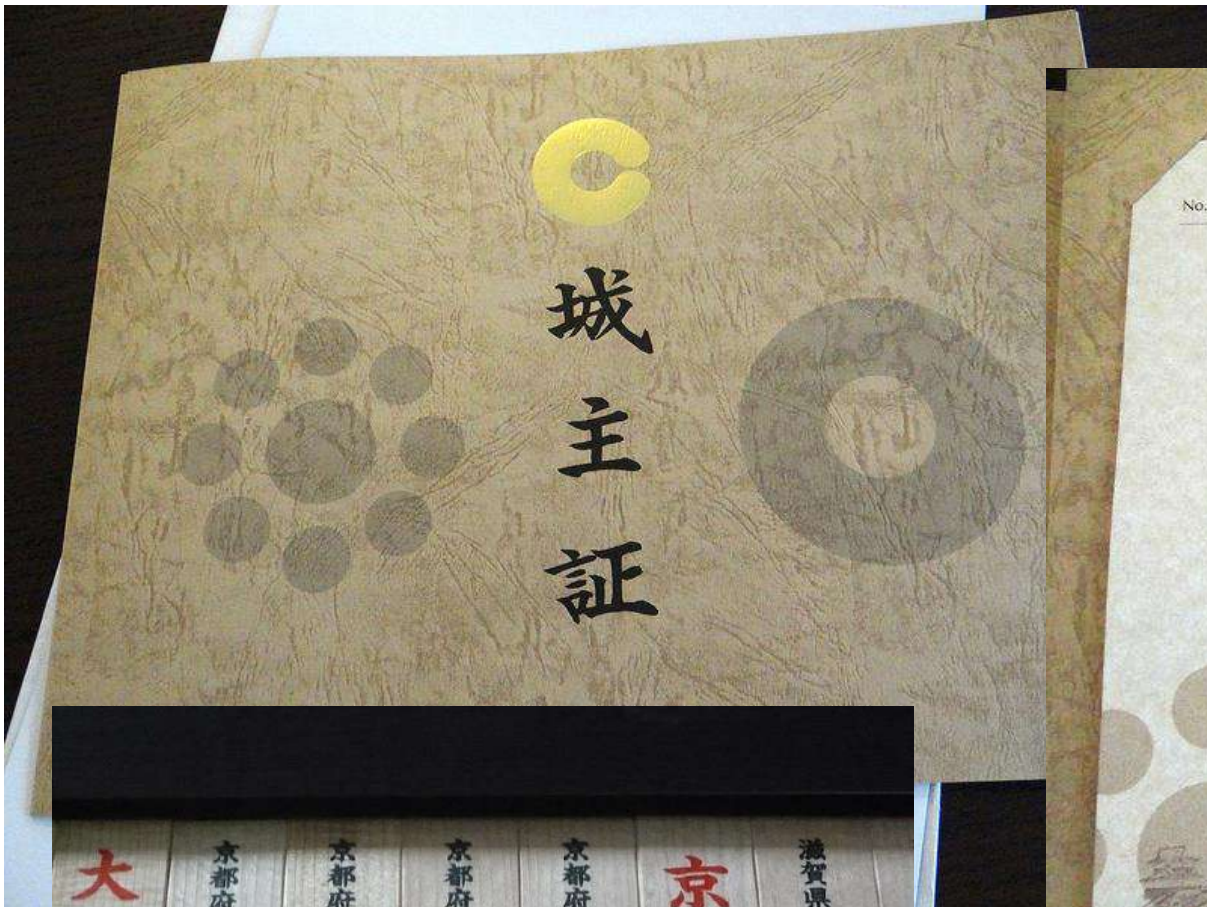 城主証
No.
大
京都府
京都府
京都府
京都府
京
滋賀県